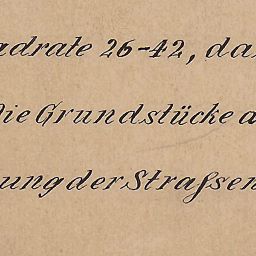 adrate 26-42, da
die Grundstücke a
ung der Straßen